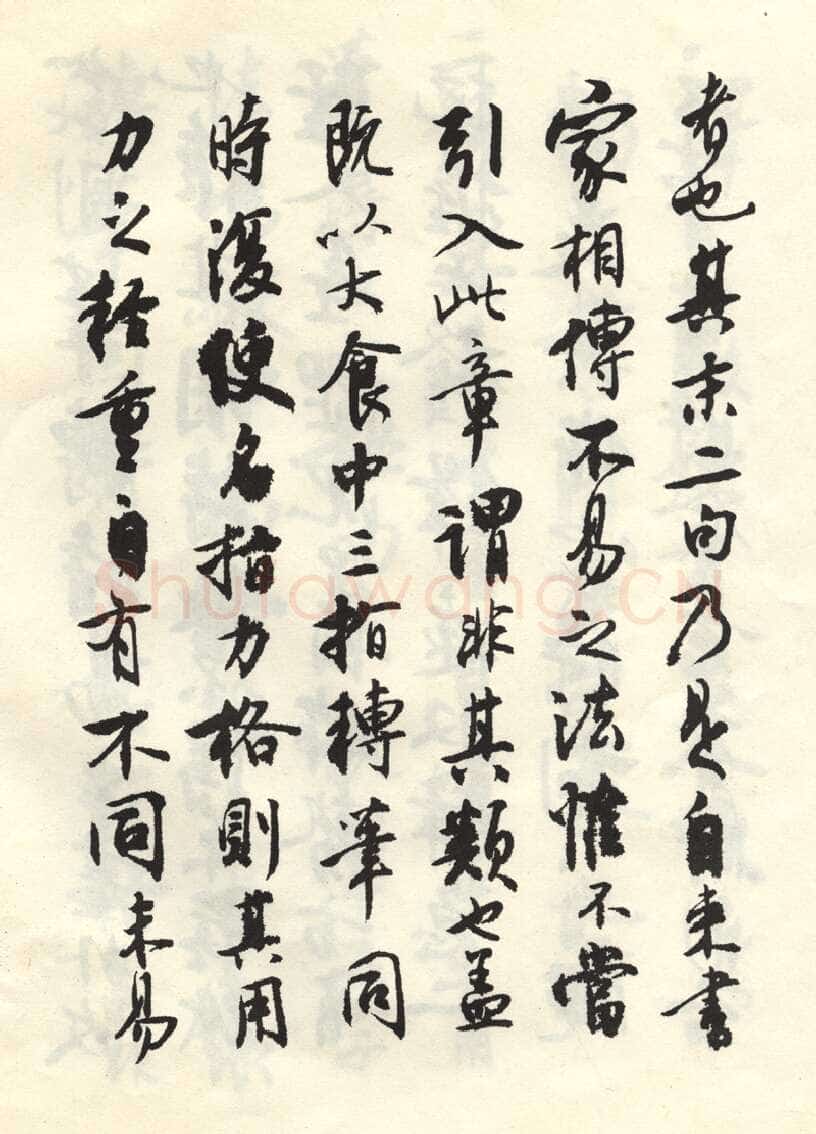 者也其末二句乃是自来書
家相傳不易之法惟不當
引入此章謂非其類也盖
既以大食中三指轉筆同
時復使名指力格則其用
力之輕重自有不同未易
Shufawang.CN